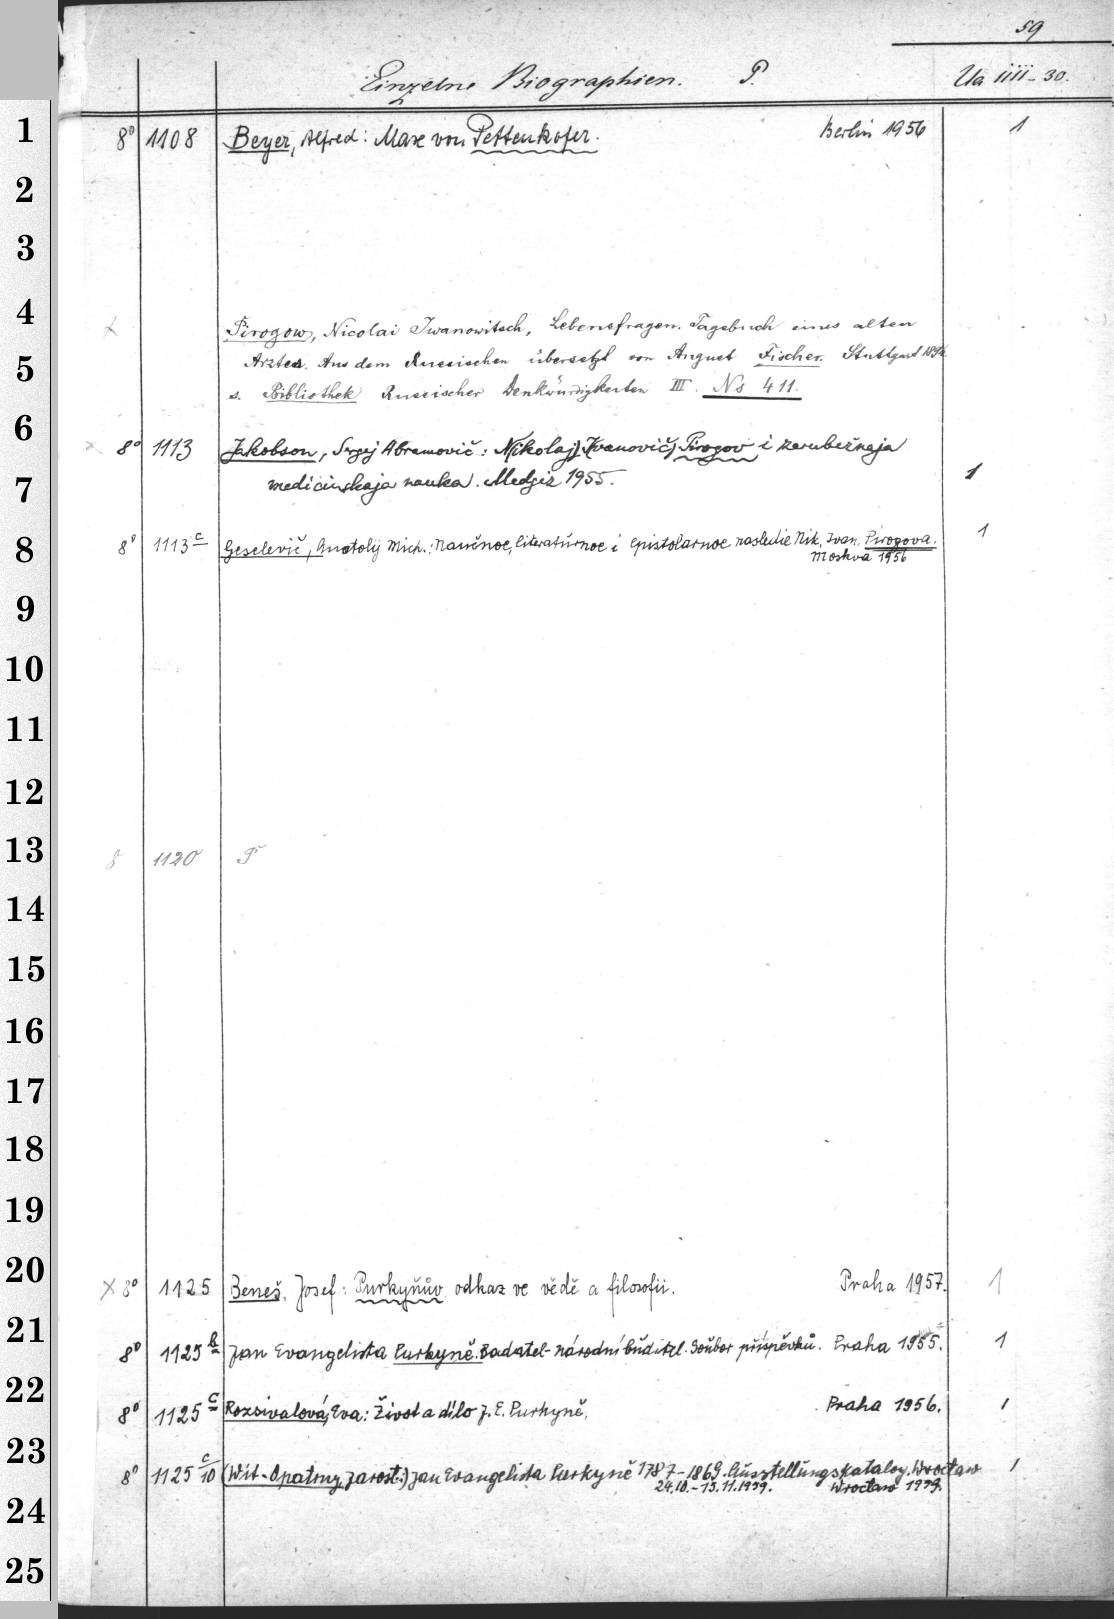 59
Einzelne Biographien. P. Ua IIII-30.
1 8° 1108 Beyer, Alfred: Max von Pettenkofer. Berlin 1956 1
2
3
4 Pirogow, Nicolai Iwanowitsch, Lebensfragen. Tagebuch eines alten
5 Arztes. Aus dem Russischen übersetzt von August Fischer. Stuttgart
s. Bibliothek Russischer Denkwürdigkeiten III. No 411.
6 8° 1113 Jakobson, Sergej Abramovič: Nikolaj Ivanovič Pirogov i zarubežnaja
7 medicinskaja nauka. Medgiz 1955. 1
8 8° 1113c Geselevič, Anatolij Mich.: Naučnoe, literaturnoe i epistolarnoe nasledie Nik. Ivan. Pirogova. 1
Moskva 1956
9
10
11
12
13 8 1120 P
14
15
16
17
18
19
20 X 8° 1125 Beneš, Josef: Purkyňův odkaz ve vědě a filosofii. Praha 1957. 1
21 8° 1125b Jan Evangelista Purkyně. Badatel-národní buditel. Soubor příspěvků. Praha 1955. 1
22 8° 1125c Rozsivalová, Eva: Život a dílo J. E. Purkyně. Praha 1956. 1
23 8° 1125c/10 (Wit-Opatrny, Jarost:) Jan Evangelista Purkyně 1787-1869. Ausstellungskatalog. Wrocław 1
24.10.-15.11.1959. Wrocław 1959.
24
25